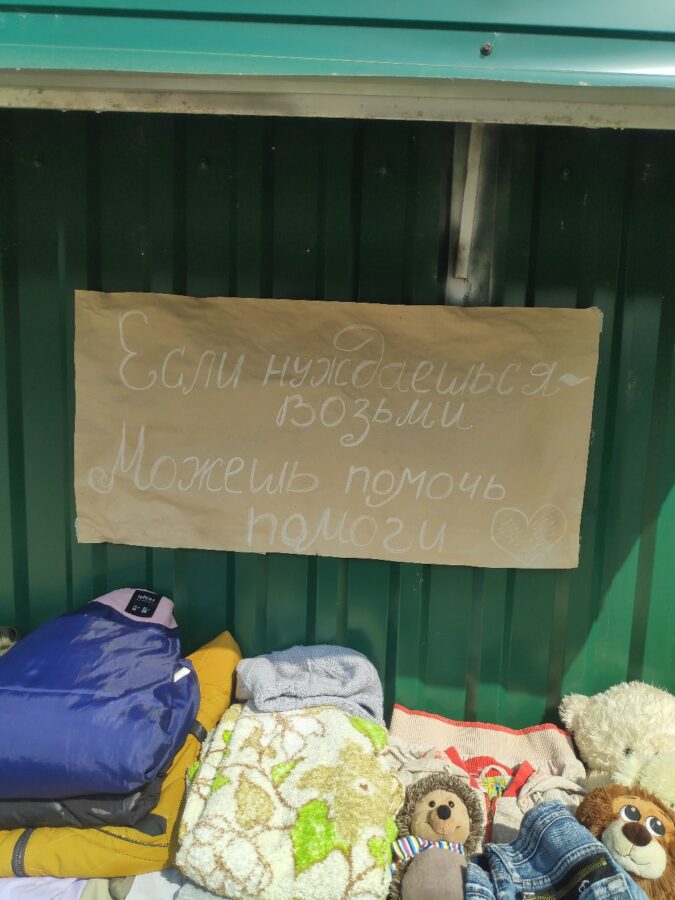 Если нуждаешься~
возьми
Можешь помочь
помоги